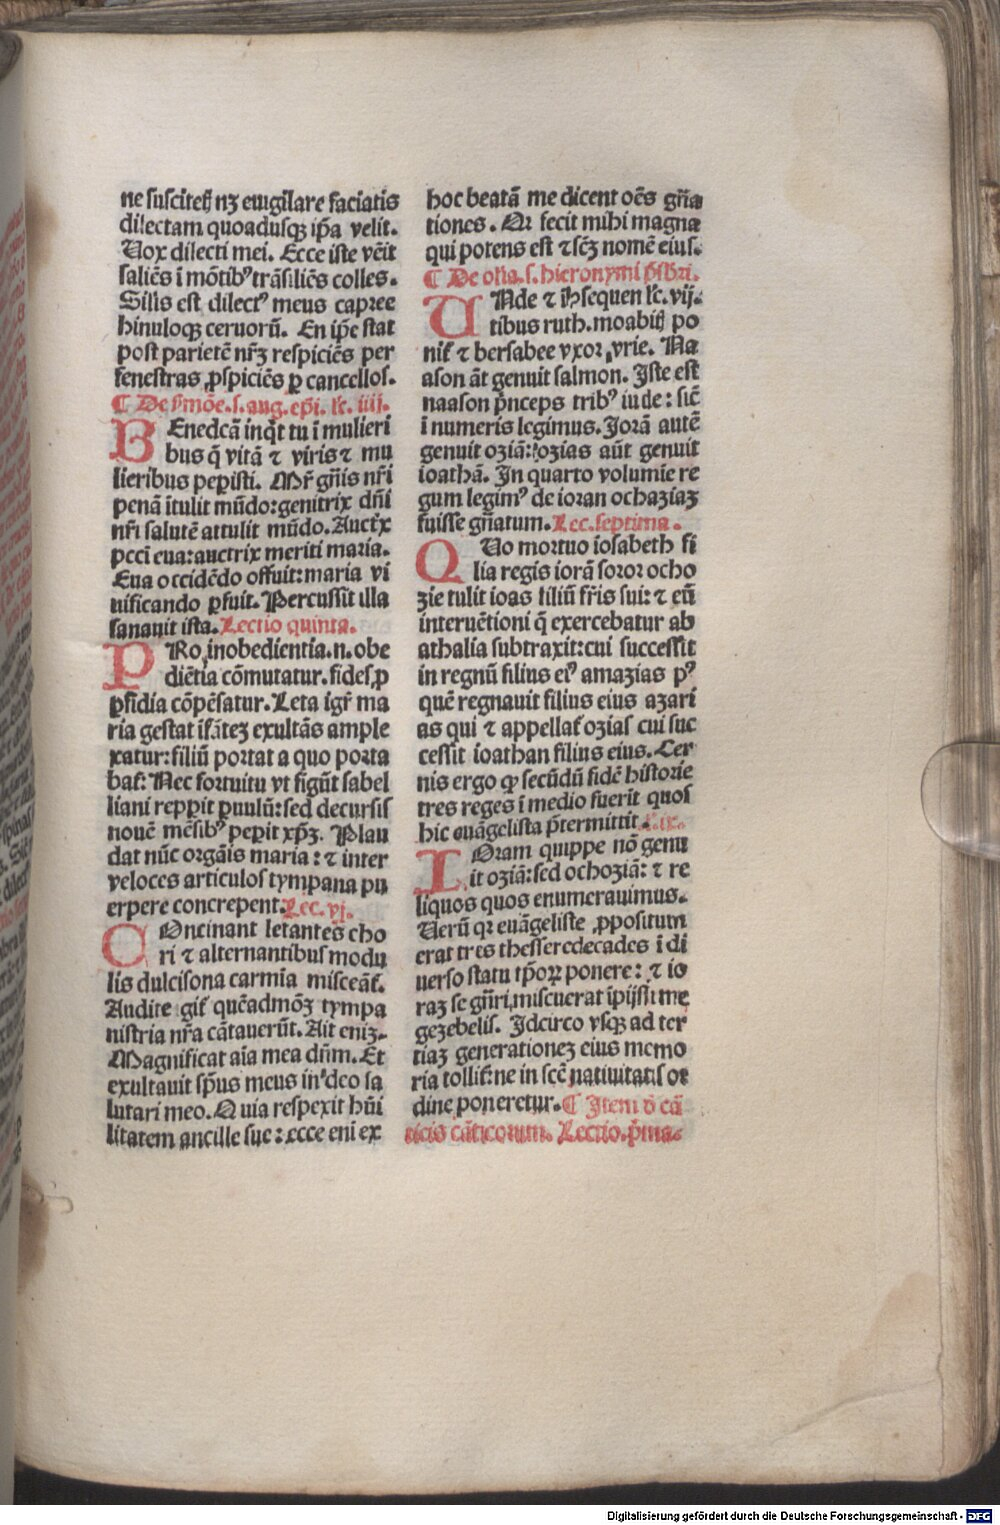 ne suscitetꝭ nꝫ euigilare faciatis
dilectam quoadusqꝫ ip̄a velit.
Uox dilecti mei. Ecce iste vēit
saliēs ī mōtibꝰ trāsiliēs colles.
Silis est dilectꝰ meus capree
hinuloqꝫ ceruorū. En ip̄e stat
post parietē nr̄ꝫ respiciēs per
fenestras ꝓspiciēs ꝑ cancellos.
¶ De s̄mōe. s. aug. ep̄i. lc̄. iiij.
BEnedcā inqͥt tu ī mulieri
bus q̄ vitā ⁊ viris ⁊ mu
lieribus peꝑisti. Mr̄ gn̄is nr̄i
penā ītulit mūdo: genitrix dn̄i
nr̄i salutē attulit mūdo. Auctͥx
pccī eua: auctrix meriti maria.
Eua occidēdo offuit: maria vi
uificando ꝓfuit. Percussit illa
sanauit ista. Lectio quinta.
PRo inobedientia. n. obe
diētia cōmutatur. fides ꝓ
ꝑfidia cōpēsatur. Leta igr̄ ma
ria gestat īfāteꝫ exultās ample
xatur: filiū portat a quo porta
bat̄. Nec fortuitu vt figūt sabel
liani repꝑit ꝑuulū: sed decursis
nouē mēsibꝰ peꝑit xp̄ꝫ. Plau
dat nūc orgāis maria: ⁊ inter
veloces articulos tympana pu
erpere concrepent. Lec. vj.
COncinant letantes cho
ri ⁊ alternantibus modu
lis dulcisona carmīa misceāt̄.
Audite igit̄ quēadmōꝫ tympa
nistria nr̄a cātauerūt. Ait enīꝫ.
Magnificat aīa mea dn̄m. Et
exultauit sp̄us meus in deo sa
lutari meo. Quia respexit hūi
litatem ancille sue: ecce enī ex
hoc beatā me dicent oēs gn̄a
tiones. Qꝛ fecit mihi magna
qui potens est ⁊ sc̄ꝫ nomē eius.
¶ De oīa. s. hieronymi p̄sbri.
UNde ⁊ ī hsequen lc̄. vij.
tibus ruth. moabitꝭ po
nit̄ ⁊ bersabee vxor vrie. Na
ason āt genuit salmon. Iste est
naason p̄nceps tribꝰ iude: sic̄
ī numeris legimus. Iorā autē
genuit oziā: ozias aūt genuit
ioathā. In quarto volumīe re
gum legimꝰ de ioran ochaziaꝫ
fuisse gn̄atum. Lec. septima.
QUo mortuo iosabeth fi
lia regis iorā soror ocho
zie tulit ioas filiū fr̄is sui: ⁊ eū
interuētioni q̄ exercebatur ab
athalia subtraxit: cui successit
in regnū filius eiꝰ amazias pꝰ
quē regnauit filius eius azari
as qui ⁊ appellat̄ ozias cui suc
cessit ioathan filius eius. Cer
nis ergo ꝙ secūdū fidē historie
tres reges ī medio fuerīt quos
hic euāgelista p̄termittit. l. ix.
IOram quippe nō genu
it oziā: sed ochoziā: ⁊ re
liquos quos enumerauimus.
Uerū qꝛ euāgeliste ꝓpositum
erat tres thesseredecades ī di
uerso statu tp̄oꝝ ponere: ⁊ io
raꝫ se gn̄ri miscuerat īpijssime
gezebelis. Idcirco vsqꝫ ad ter
tiaꝫ generationeꝫ eius memo
ria tollit̄: ne in sc̄e natiuitatis or
dine poneretur. ¶ Item d̄ cā
ticis cāticorum. Lectio. p̄ma.
Digitalisierung gefördert durch die Deutsche Forschungsgemeinschaft - DFG